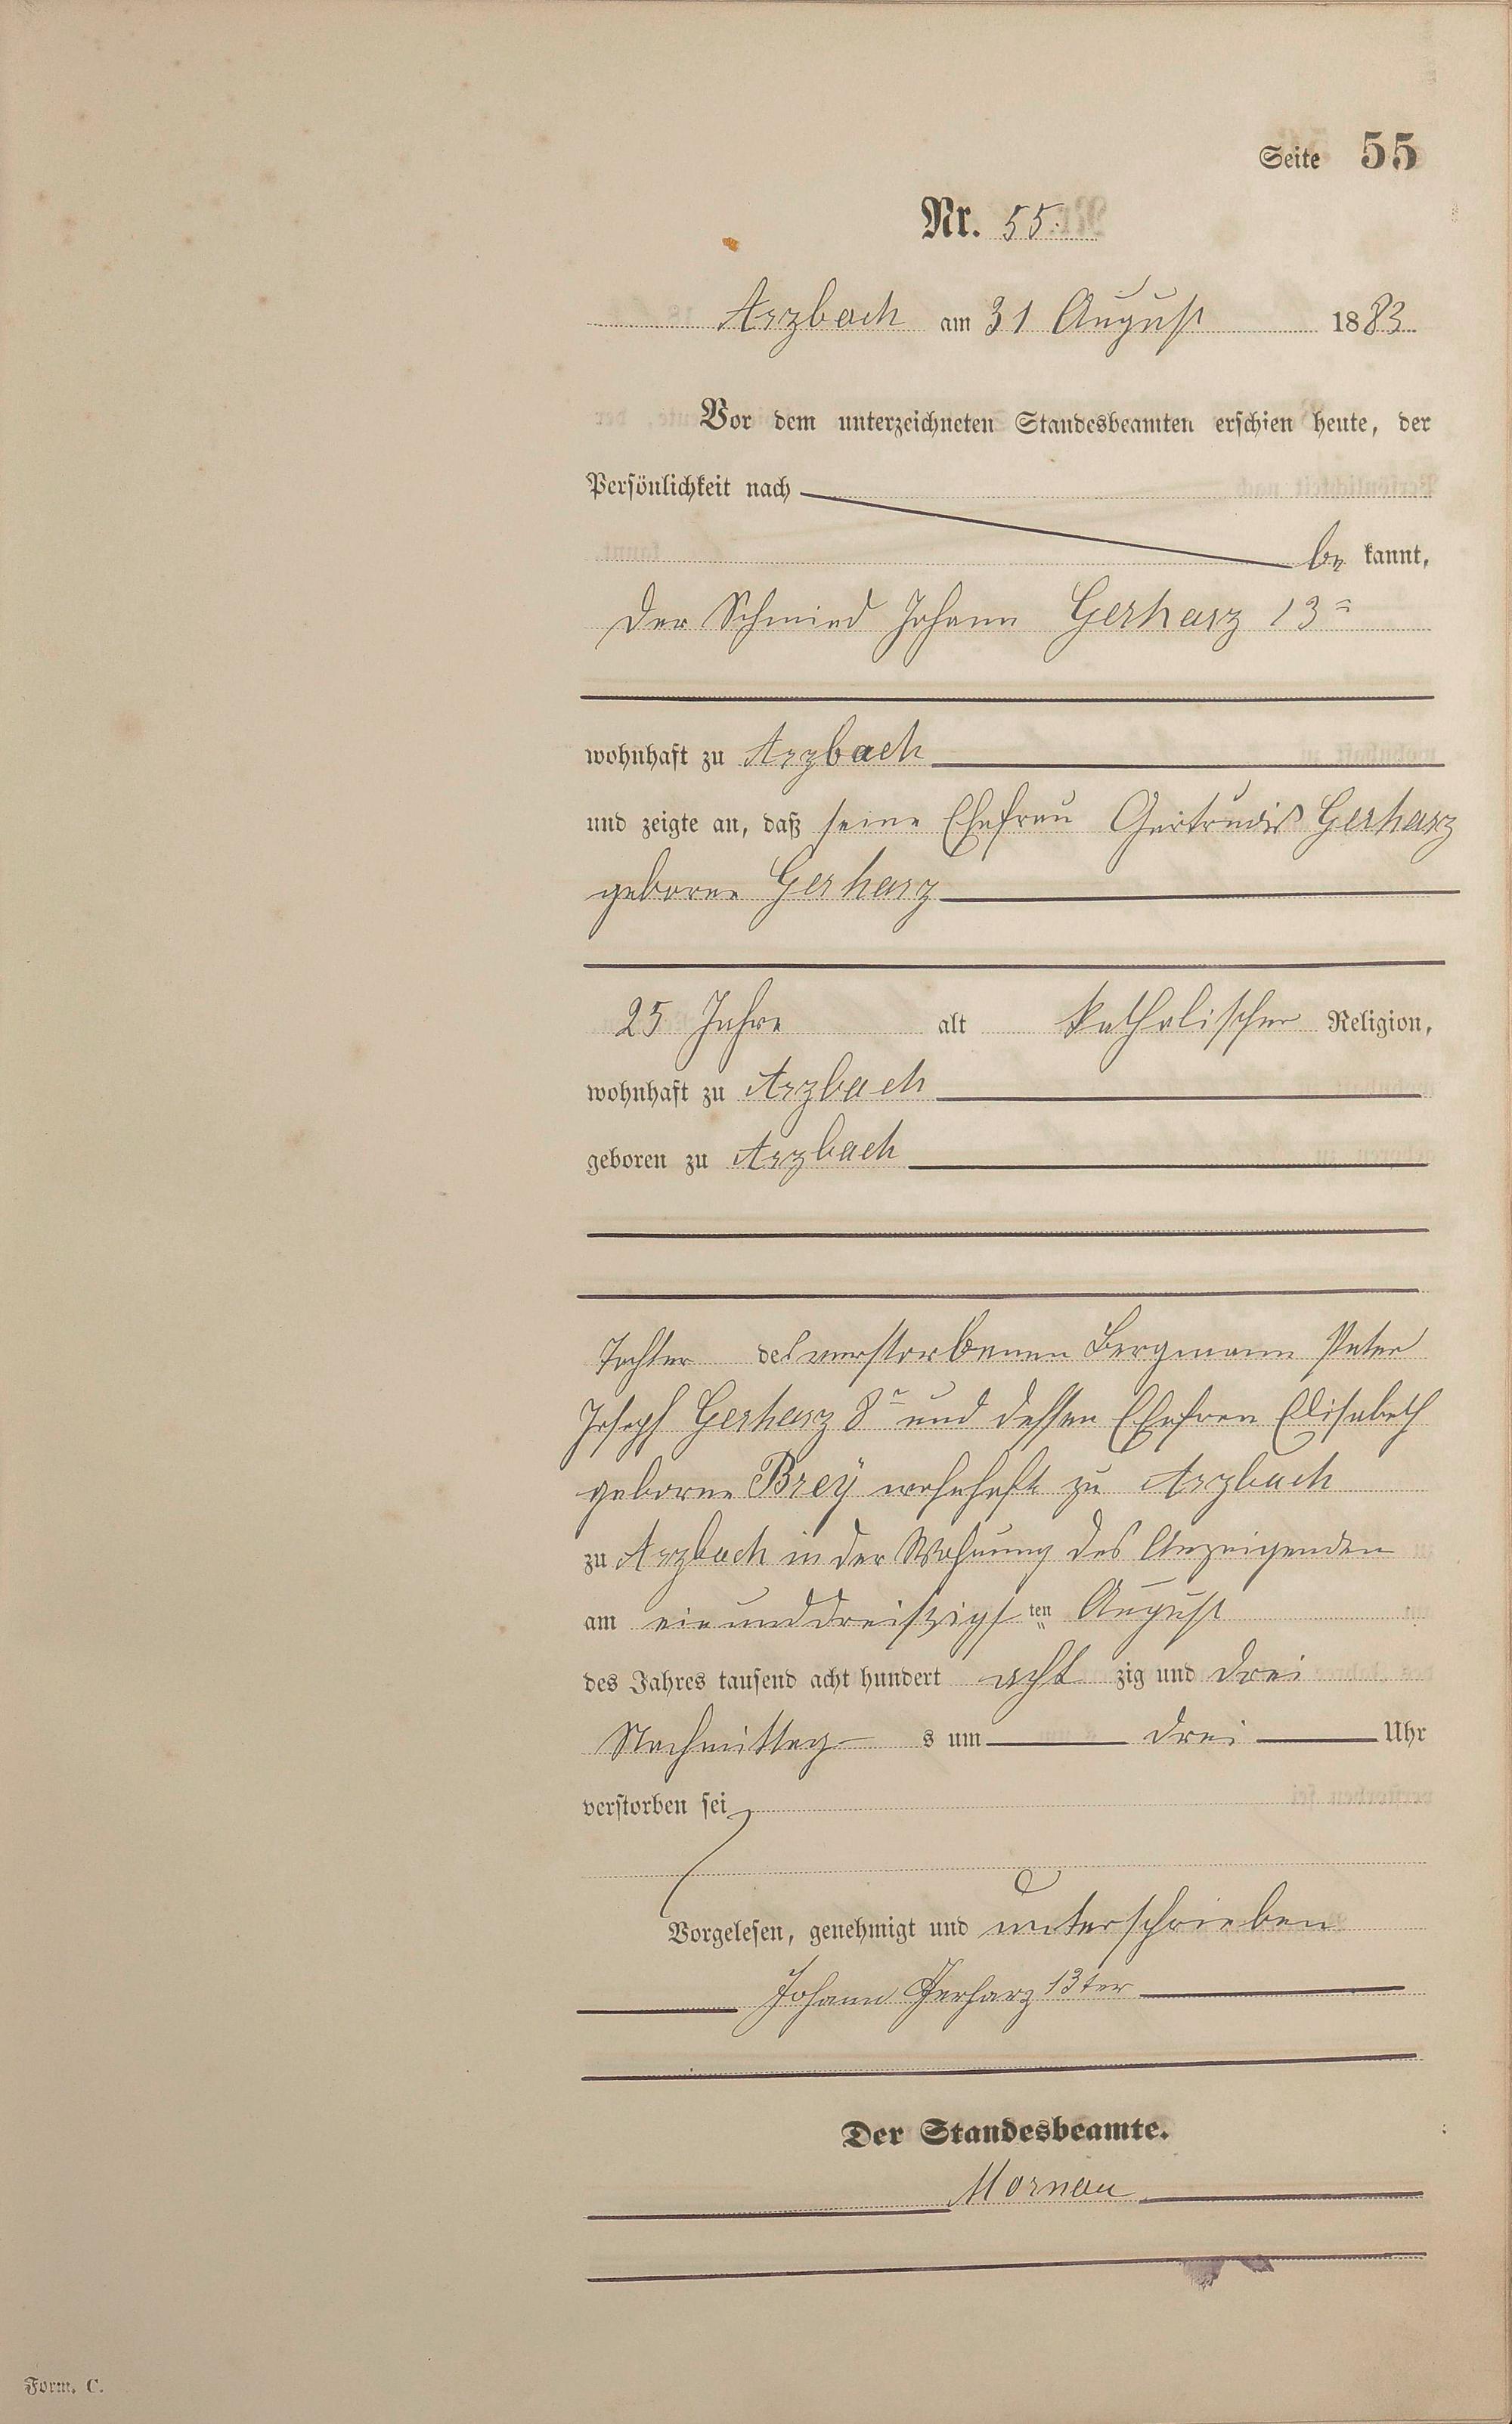 Seite 55
Nr. 55.
Arzbach am 31 August 1883.
Vor dem unterzeichneten Standesbeamten erschien heute, der
Persönlichkeit nach
be kannt,
der Schmied Johann Gerharz 13r
wohnhaft zu Arzbach
und zeigte an, daß seine Ehefrau Gertrudis Gerharz
geborne Gerharz
25 Jahre alt katholischer Religion,
wohnhaft zu Arzbach
geboren zu Arzbach
Tochter des verstorbenen Bergmann Peter
Joseph Gerharz 8r und dessen Ehefrau Elisabeth
geborne Breÿ wohnhaft zu Arzbach
zu Arzbach in der Wohnung des Anzeigenden
am einunddreiszigsten August
des Jahres tausend acht hundert acht zig und drei
Nachmittag s um drei Uhr
verstorben sei
Vorgelesen, genehmigt und unterschrieben
Johann Gerharz 13ter
Der Standesbeamte.
Mornau
Form. C.